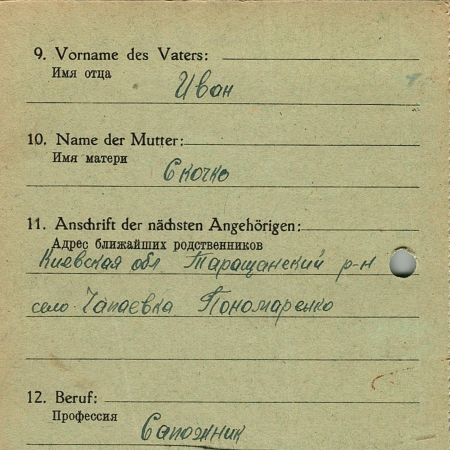 9. Vorname des Vaters:
Имя отца
Иван
10. Name der Mutter:
Имя матери
Скочко
11. Anschrift der nächsten Angehörigen:
Адрес ближайших родственников
Киевская обл Таращанский р-н
село Чапаевка Пономаренко
12. Beruf:
Профессия
Сапожник